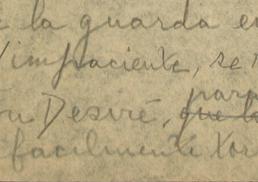 e la guarda en
impaciente, se
para
Desiré, que la
facilmente tor